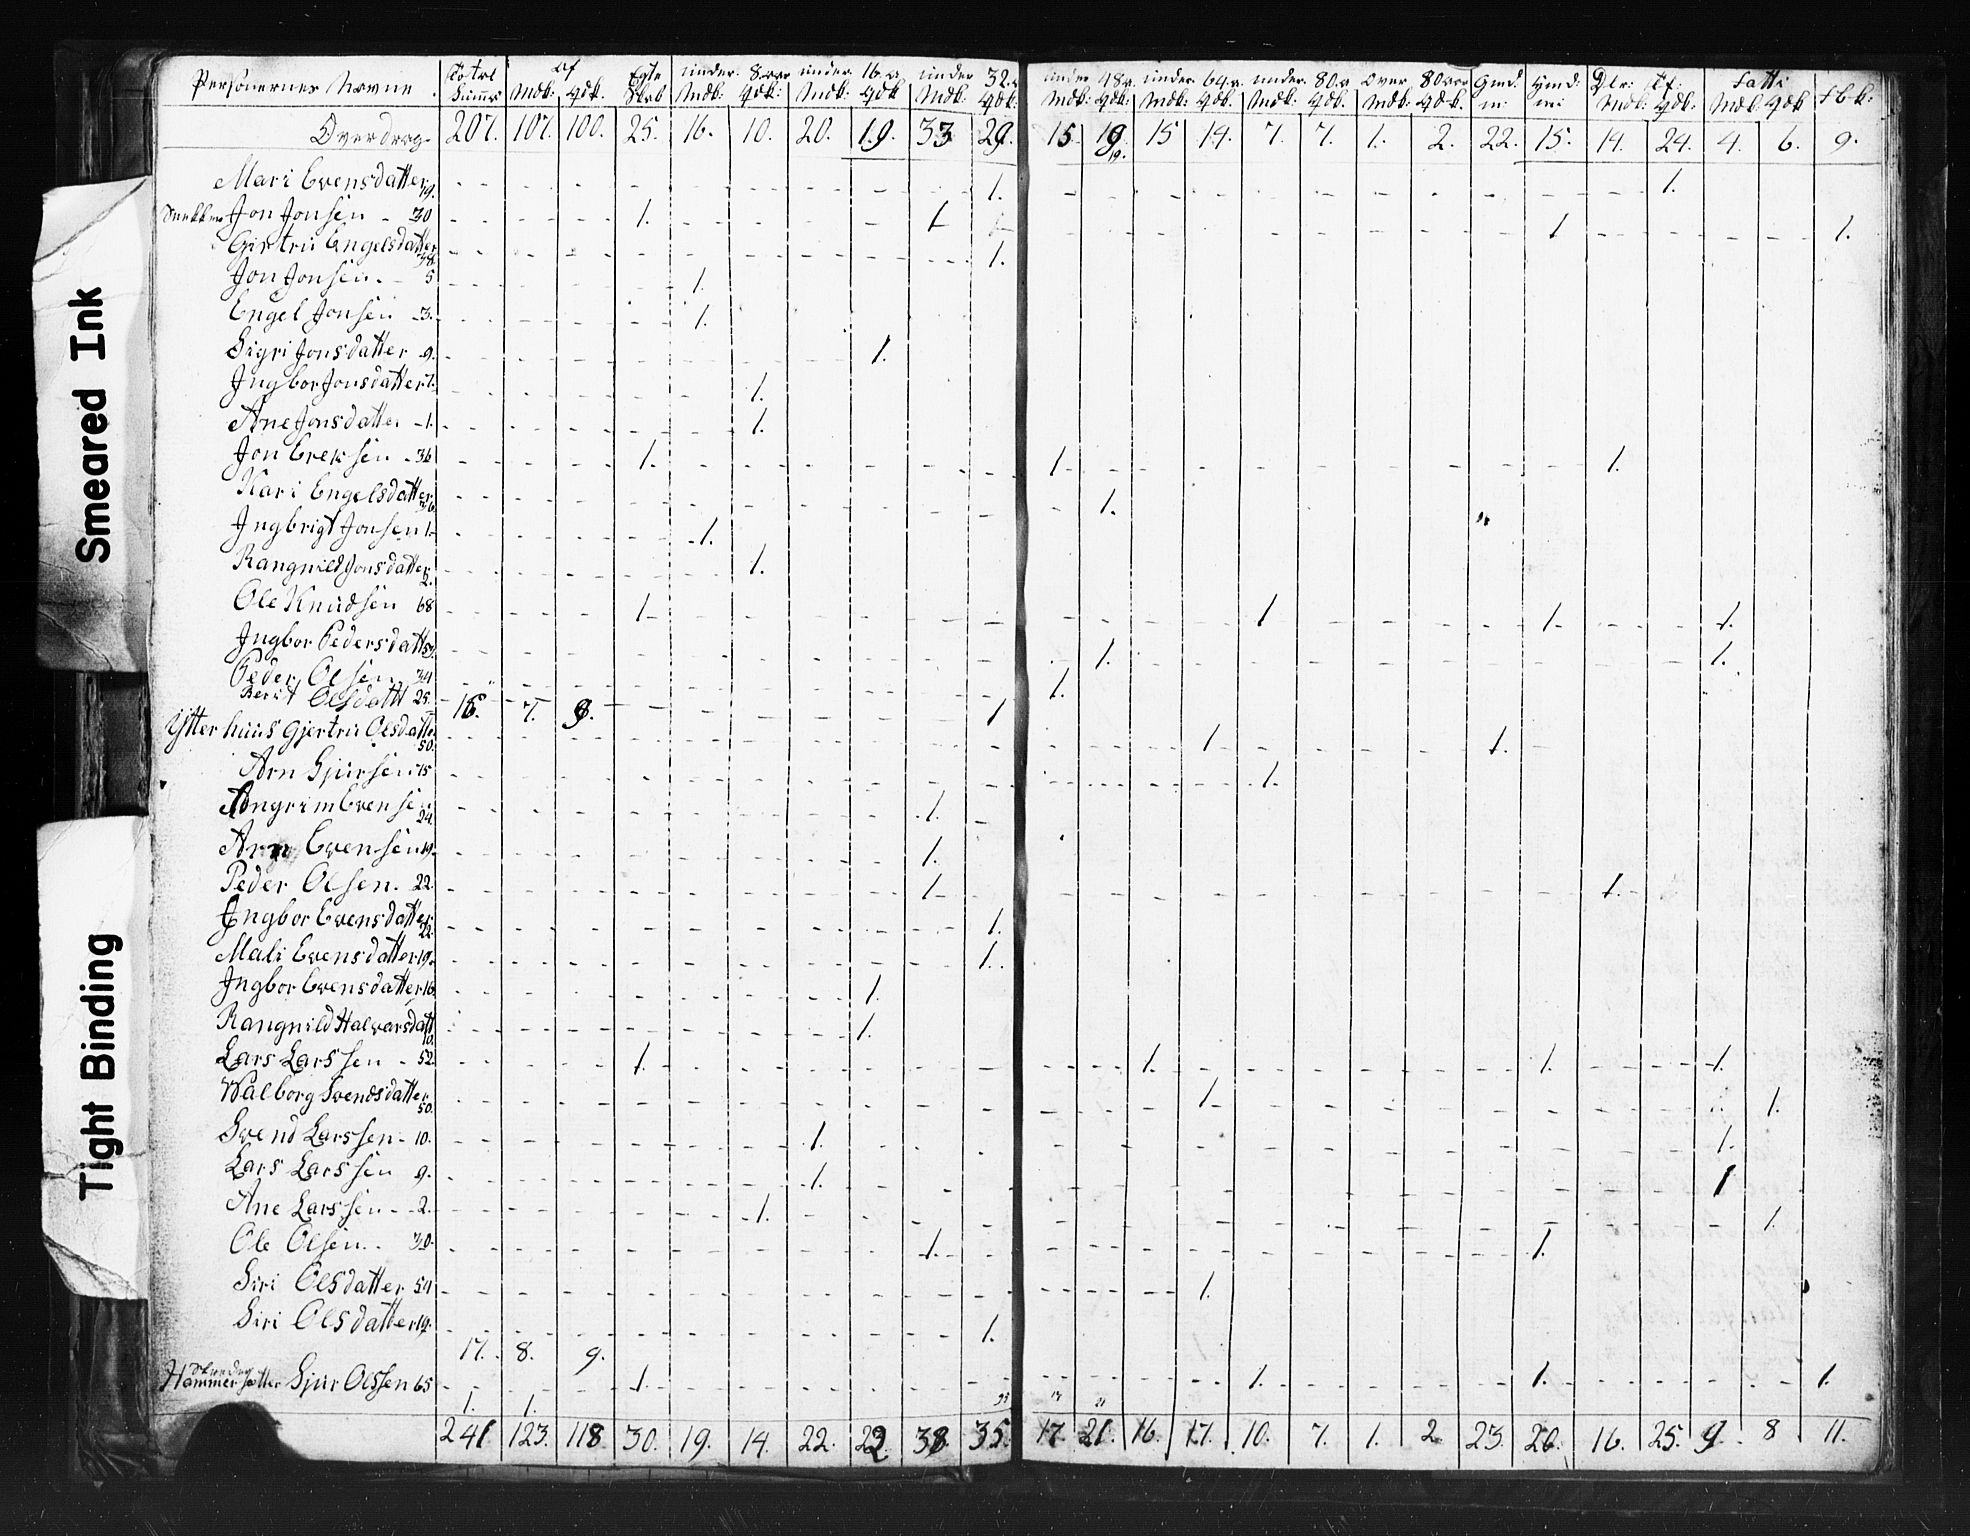 Smeared Ink
Tight Binding
Personernes Navne Total Af Egte under 8. aar under 16. a. under 32. a.
Summa Mdk: Qdk. Mdk: Qdk: Mdk: Qdk Mdk: Qdk:
under 48 a. under 64. a. under 80. a over 80 aar Gmd: Hmd: Fatti
Mdk: Qdk: Mdk: Qdk: Mdk: Qdk: Mdk: Qdk. Mdk: Qdk: Mdk Qdk
Overdrag. 207. 107. 100. 25. 16. 10. 20. 19. 33 29. 15. 19. 15 14. 7. 7. 1. 2. 22. 15. 14. 24. 4. 6. 9.
19.
Mari Evensdatter 19. 1. 1.
Snekker Jon Jonsen - 30 1. 1 1 1.
Girtru Engelsdatter 1.
Jon Jonsen. - 5 1.
Engel Jonsen - 3. 1.
Sigri Jonsdatter - 9. 1.
Ingbor Jonsdatter 7. 1.
Ane Jonsdatter - 1. 1.
Jon Ereksen - 36 1. 1 1.
Kari Engelsdatter 36. 1.
Ingbrigt Jonsen 1- 1.
Rangnild Jonsdatter 2. 1.
Ole Knudsen 68 1 1 1. 1.
Ingbor Pedersdatt 1. 1.
Peder Olsen. 34 1.
Berit Olsdatt 25. 16. 7. 9. 1
Ytterhuus Gjertru Olsdatter 50. 1 1.
Arn Sjursen 75 1.
Arngrim Evensen 24. 1.
Arn Evensen 19. 1.
Peder Olsen. 22. 1 1.
Ingbor Evensdatter 22. 1.
Mali Evensdatter 19. 1.
Ingbor Evensdatter 16 1.
Rangnild Halvarsdatt 10. 1.
Lars Larssen - 52. 1. 1. 1. 1.
Walborg Svendsdatter 50. 1 1.
Svend Larssen - 10. 1. 1.
Lars Larssen 9. 1. 1
Ane Larssen - 2. 1. 1.
Ole Olsen. 30. 1. 1.
Siri Olsdatter 54 1.
Siri Olsdatter 19. 1.
17. 8. 9.
Hammersætter Sjur Olssen 65 1. 1. 1. 1.
1. 1.
241 123. 118 30. 19. 14. 22. 22 38 35. 17. 21. 16. 17. 10. 7. 1. 2. 23. 20. 16. 25. 9. 8 11.